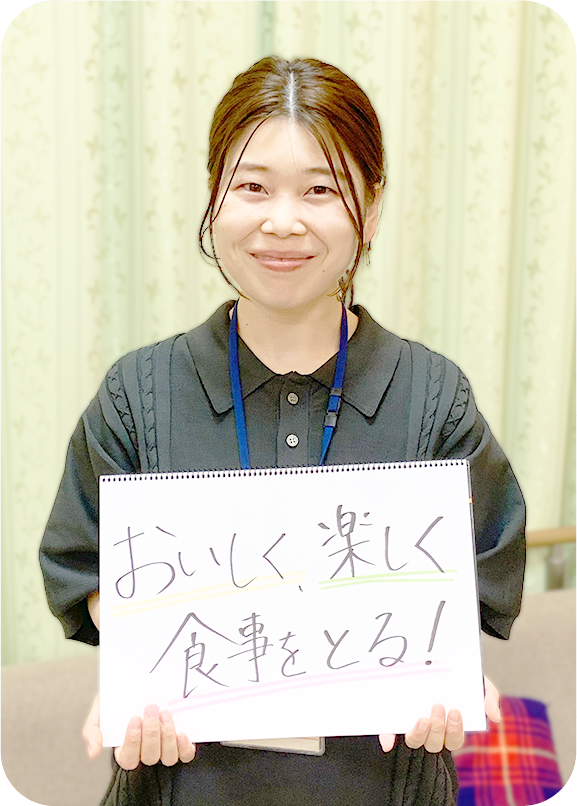 おいしく、楽しく
食事をとる！